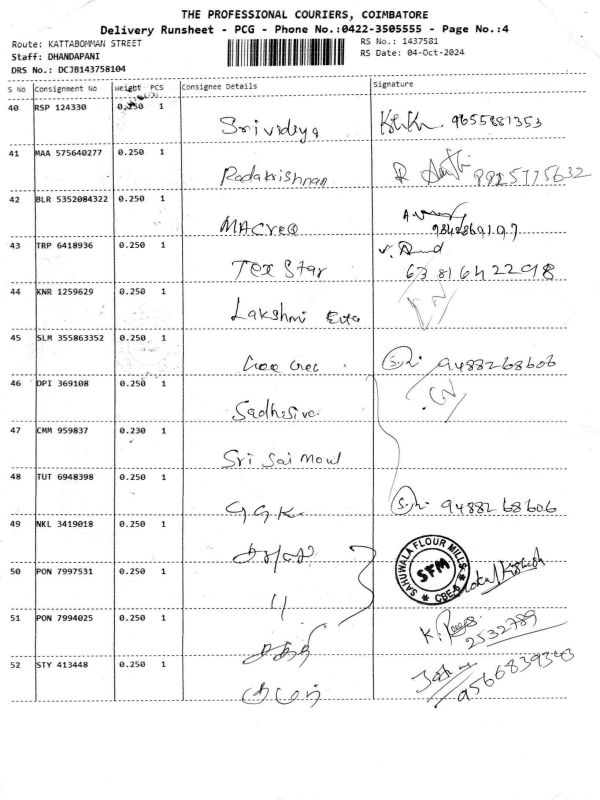 THE PROFESSIONAL COURIERS, COIMBATORE
Delivery Runsheet - PCG - Phone No.:0422-3505555 - Page No.:4
Route: KATTABOMMAN STREET RS No.: 1437581
Staff: DHANDAPANI RS Date: 04-Oct-2024
DRS No.: DCJB143758104
S No Consignment No Weight PCS Consignee Details Signature
40 RSP 124330 0.250 1 Srividhya 9655881353
41 MAA 575640277 0.250 1 Radakrishnan
42 BLR 5352084322 0.250 1
43 TRP 6418936 0.250 1 Tex Star 6381642298
44 KNR 1259629 0.250 1 Lakshmi
45 SLM 355863352 0.250 1 9488268606
46 DPI 369108 0.250 1 Sadhesiva
47 CMM 959837 0.230 1 Sri Sai Moul
48 TUT 6948398 0.250 1 G G K 9488268606
49 NKL 3419018 0.250 1
SAHUWALA FLOUR MILLS
SFM
CBE-5
50 PON 7997531 0.250 1 "
51 PON 7994025 0.250 1 2532789
52 STY 413448 0.250 1 9566839343